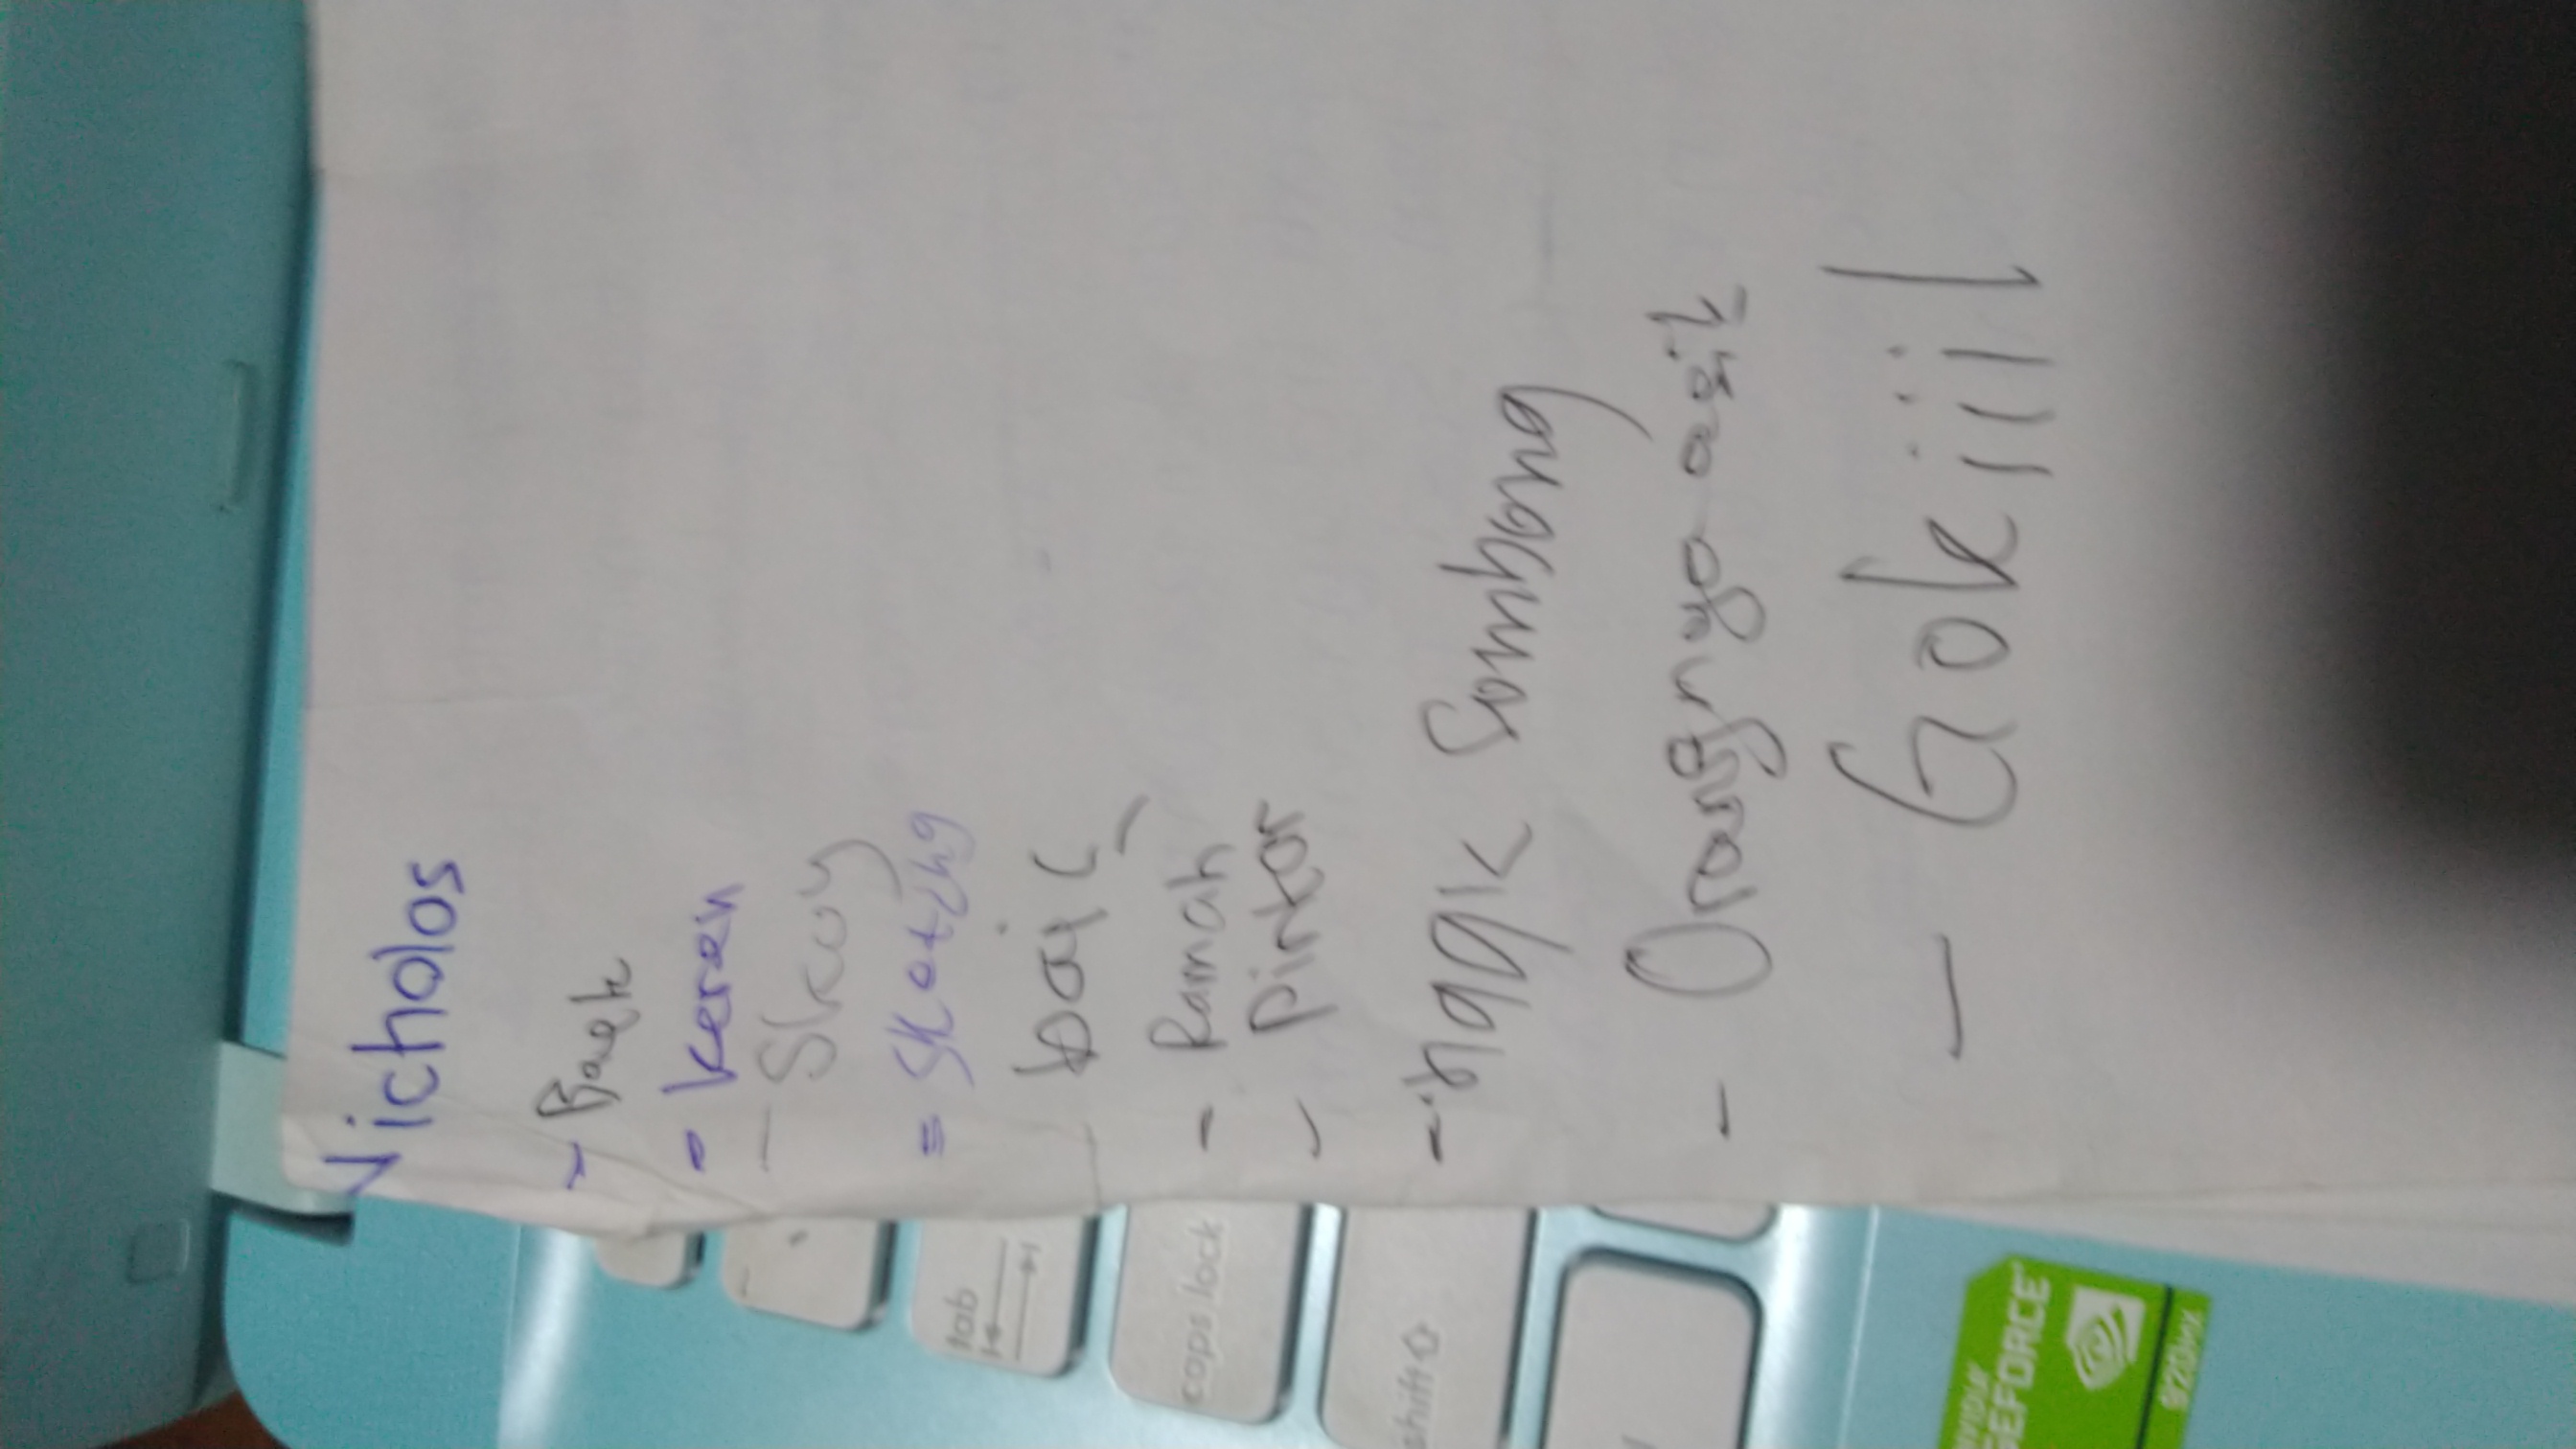 Nicholas
- Baek
- keren
- Skuy
=
baik
- Ramah
- Pintar
- nggk Sombong
- Orangnya asik
- Gokiiil
tab
caps lock
shift
NVIDIA
GEFORCE
920MX